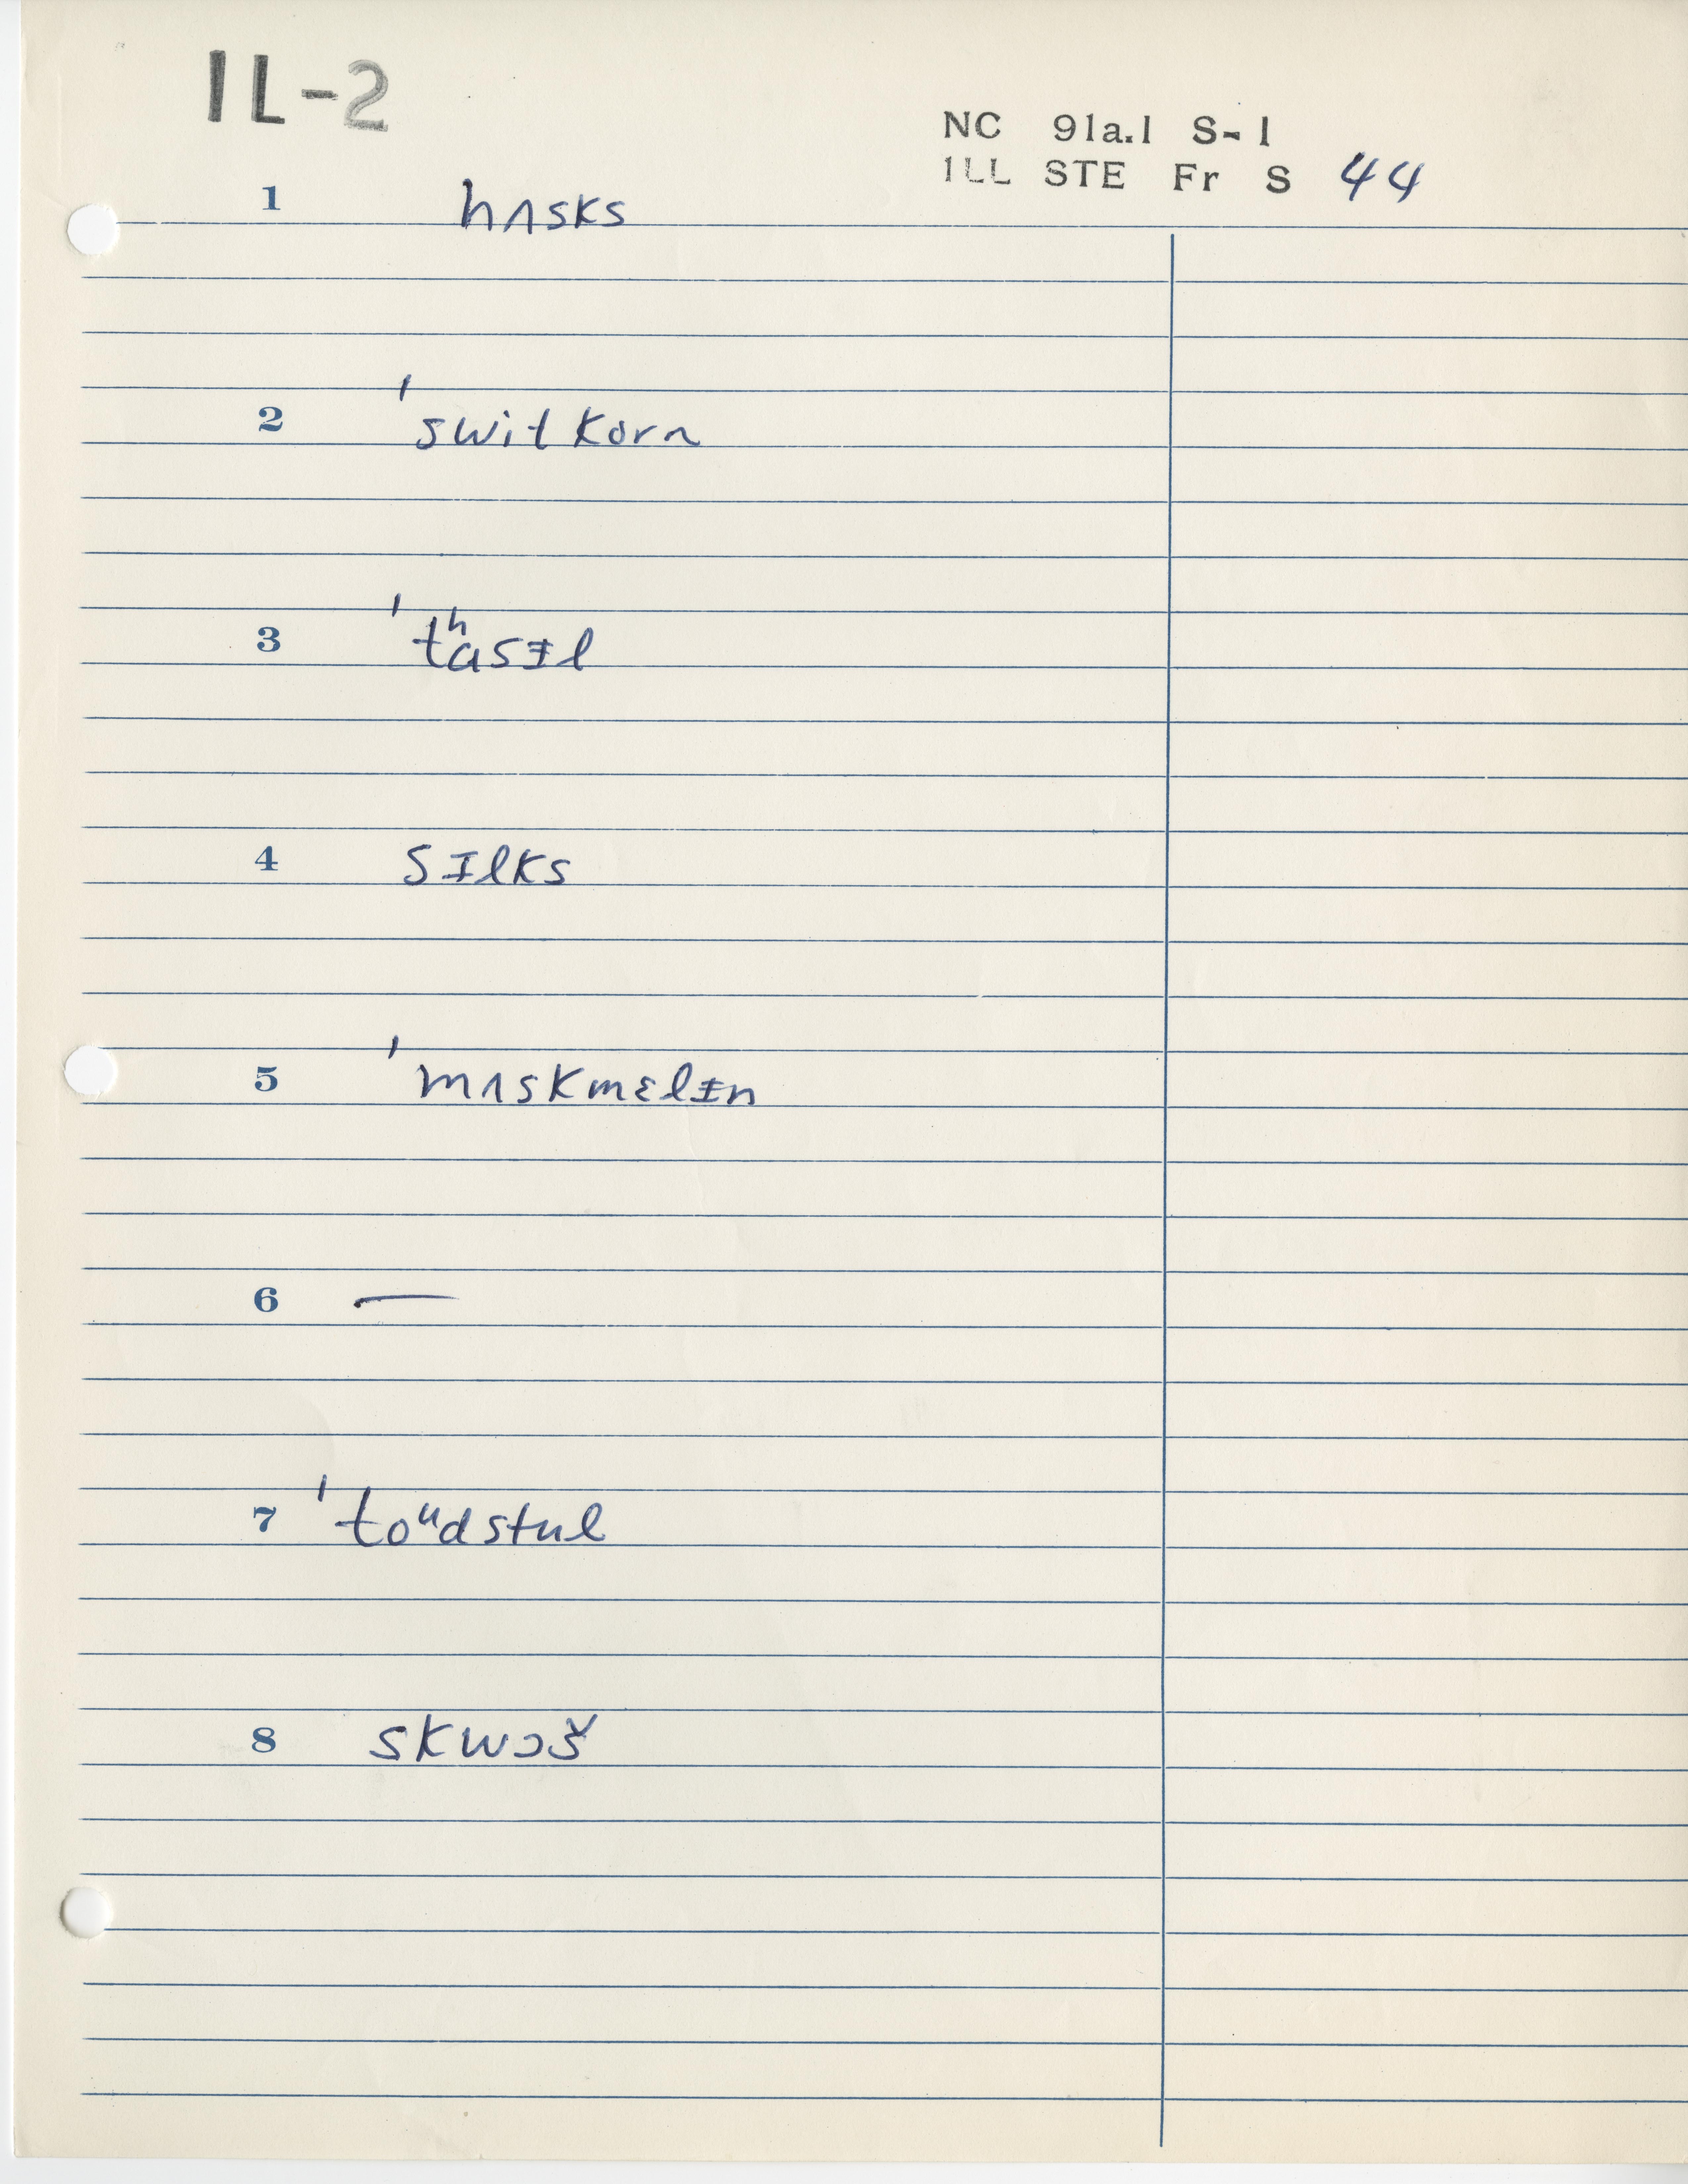 IL-2
NC 91a.1 S-1
ILL STE Fr S 44
1 hʌsks
2 ˈswitkorn
3 ˈtʰasɨl
4 sɪlks
5 ˈmʌskmɛlɨn
6 —
7 ˈtoᵘdstul
8 skwɔš